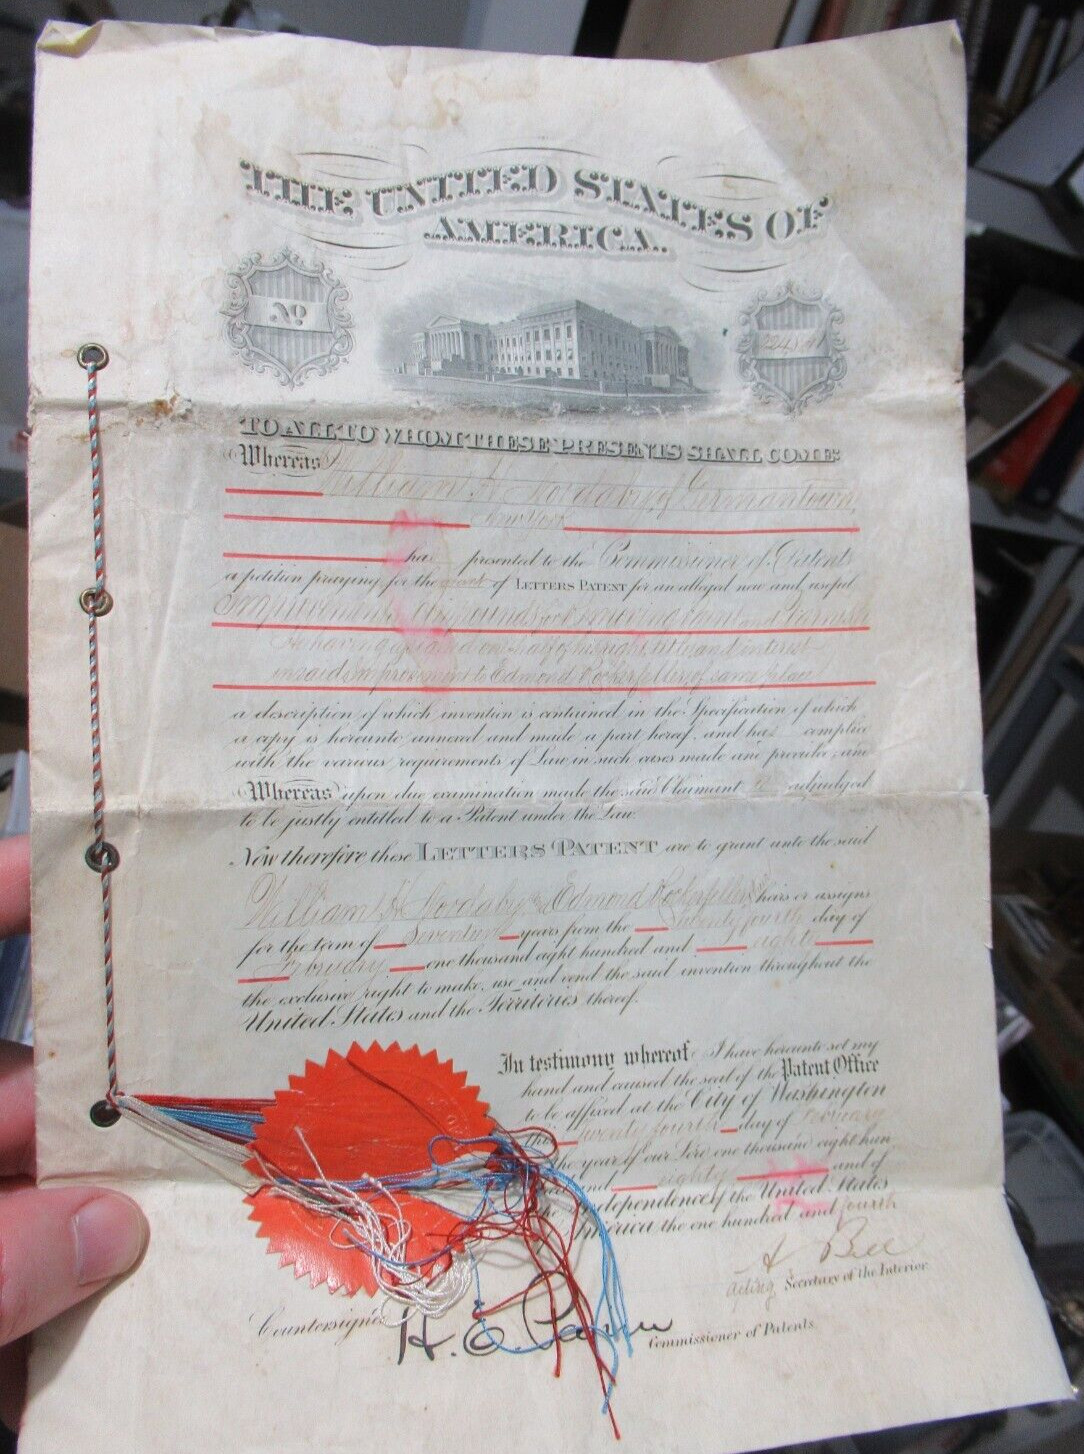 THE UNITED STATES OF
AMERICA.
No
TO ALL TO WHOM THESE PRESENTS SHALL COME:
Whereas William H. of Germantown,
New York
has presented to the Commissioner of Patents
a petition praying for the grant of LETTERS PATENT for an alleged new and useful
Improvement in Compounds for Removing Paint and Varnish
He having assigned one-half of his right, title and interest
in said improvement to Edmond Rockefeller, of same place
a description of which invention is contained in the Specification of which
a copy is hereunto annexed and made a part hereof, and has complied
with the various requirements of Law in such cases made and provided, and
Whereas upon due examination made the said Claimant is adjudged
to be justly entitled to a Patent under the Law.
Now therefore these LETTERS PATENT are to grant unto the said
William H. and Edmond Rockefeller, their heirs or assigns
for the term of Seventeen years from the twenty fourth day of
February one thousand eight hundred and eighty
the exclusive right to make, use and vend the said invention throughout the
United States and the Territories thereof.
In testimony whereof I have hereunto set my
hand and caused the seal of the Patent Office
to be affixed at the City of Washington
this twenty fourth day of February
the year of our Lord one thousand eight hun-
and eighty and of
the Independence of the United States
America the one hundred and fourth
A Bell
Acting Secretary of the Interior.
Countersigned
H. E. Paine
Commissioner of Patents.